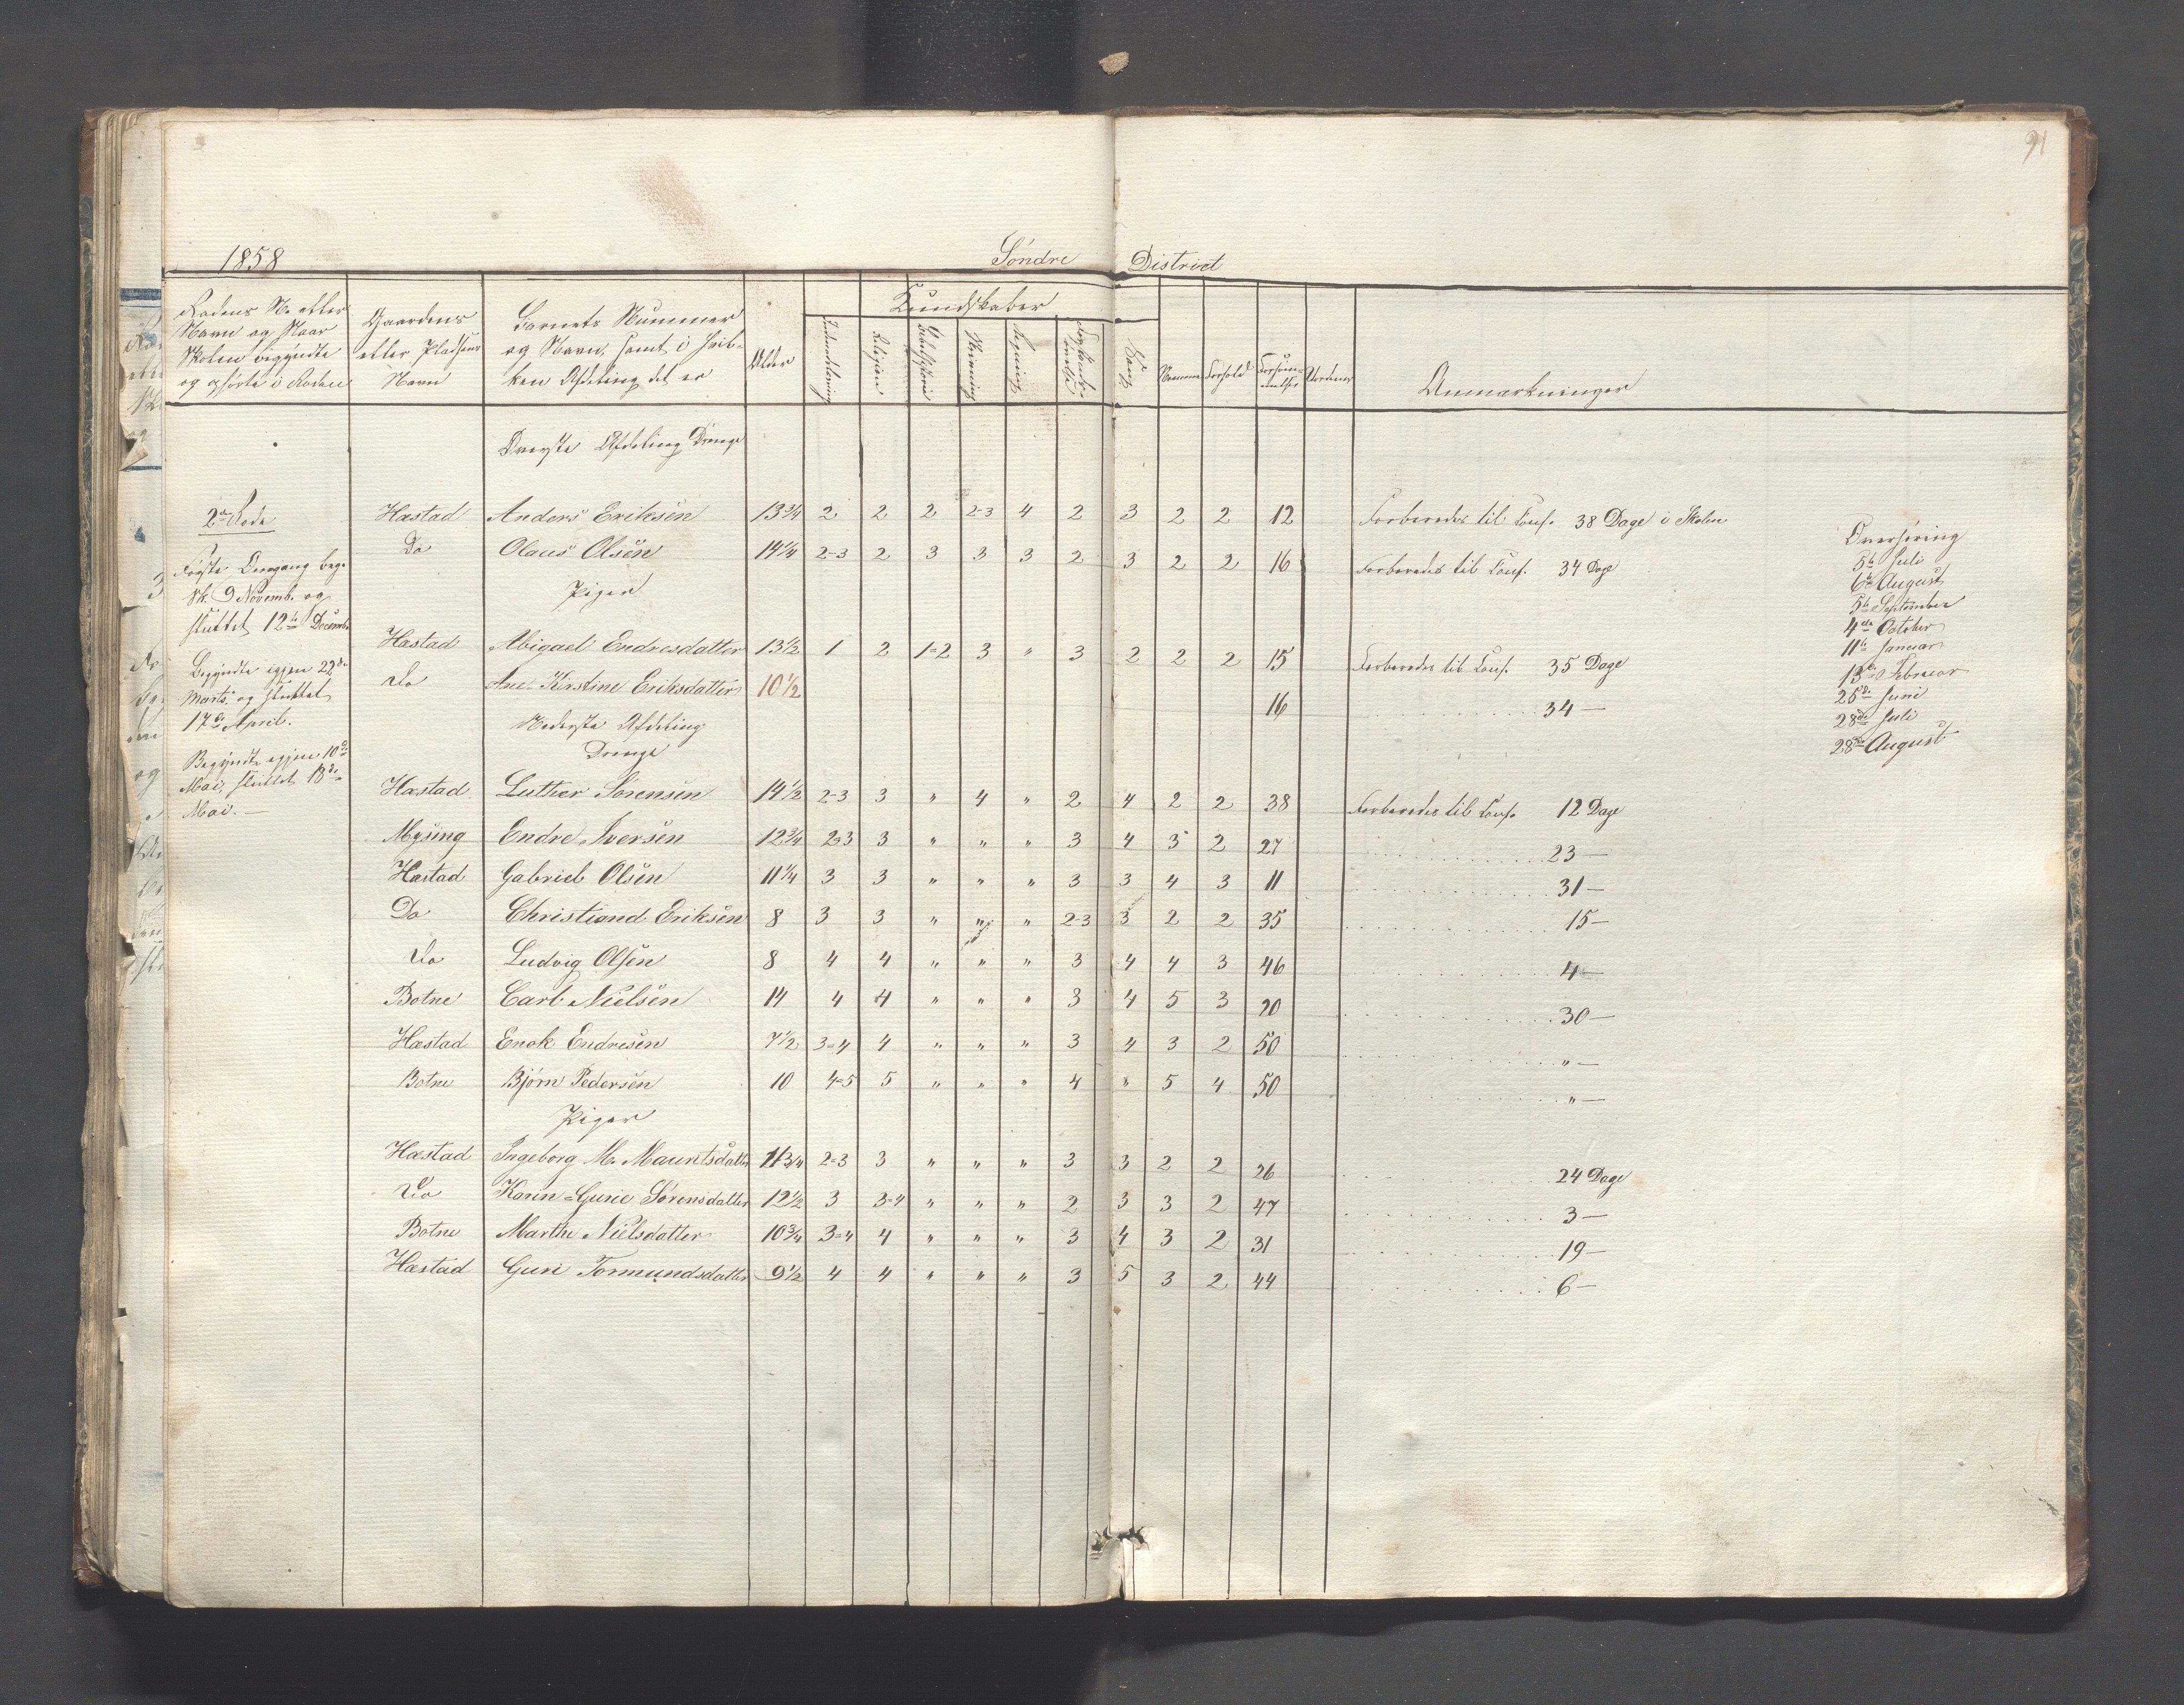 91
1858 Søndre District
Rodens No eller
Navn og Naar
Skolen begyndte
og ophørte i Roden
Gaardens
eller Pladsens
Navn
Barnets Nummer
og Navn, samt i hvil-
ken Afdeling det er
Alder
Kundskaber
Indenadlæsning
Religion
Bibelhistorie
Skrivning
Regning
Sang
Nemme
Forhold
Forsøm-
melser
Anmærkninger
Øverste Afdeling Drenge
2den Rode
Hæstad Anders Eriksen 13 3/4 2 2 2 2-3 4 2 3 2 2 12 Forberedes til Conf. 38 Dage i Skolen
Do Olaus Olsen 14 1/4 2-3 2 3 3 3 2 3 2 2 16 Forberedes til Conf. 34 Dage
Piger
Hæstad Abigael Endresdatter 13 1/2 1 2 1-2 3 " 3 2 2 2 15 Forberedes til Conf. 35 Dage
Do Ane Kirstine Eriksdatter 10 1/2 16 34 —
Nederste Afdeling
Drenge
Hæstad Luther Sørensen 14 1/2 2-3 3 " 4 " 2 4 2 2 38 Forberedes til Conf. 12 Dage
Mysing Endre Iversen 12 3/4 2-3 3 " " " 3 4 3 2 27 23 —
Hæstad Gabriel Olsen 11 1/4 3 3 " " " 3 3 4 3 11 31 —
Do Christiand Eriksen 8 3 3 " " " 2-3 3 2 2 35 15 —
Do Ludvig Olsen 8 4 4 " " " 3 4 4 3 46 4 —
Botne Carl Nielsen 14 4 4 " " " 3 4 5 3 20 30 —
Hæstad Enok Endresen 7 1/2 3-4 4 " " " 3 4 3 2 50 " —
Botne Bjørn Pedersen 10 4-5 5 " " " 4 " 5 4 50 " —
Piger
Hæstad Ingeborg M. Mauritsdatter 11 3/4 2-3 3 " " " 3 3 2 2 26 24 Dage
Do Karen-Gurie Sørensdatter 12 1/2 3 3-4 " " " 2 3 3 2 47 3 —
Botne Marthe Nielsdatter 10 3/4 3-4 4 " " " 3 4 3 2 31 19 —
Hæstad Guri Tormundsdatter 9 1/2 4 4 " " " 3 5 3 2 44 6 —
Første Omgang beg.
Sk. 9 Novemb. og
sluttet 12te Decemb.
Begyndte igjen 22de
Marts og sluttet
17de April.
Begyndte igjen 10de
Mai, sluttet 18de
Mai. —
Overhøring
5te Juli
6te August
5te September
4de October
11te Januar
13de Februar
25de Juni
28de Juli
28de August